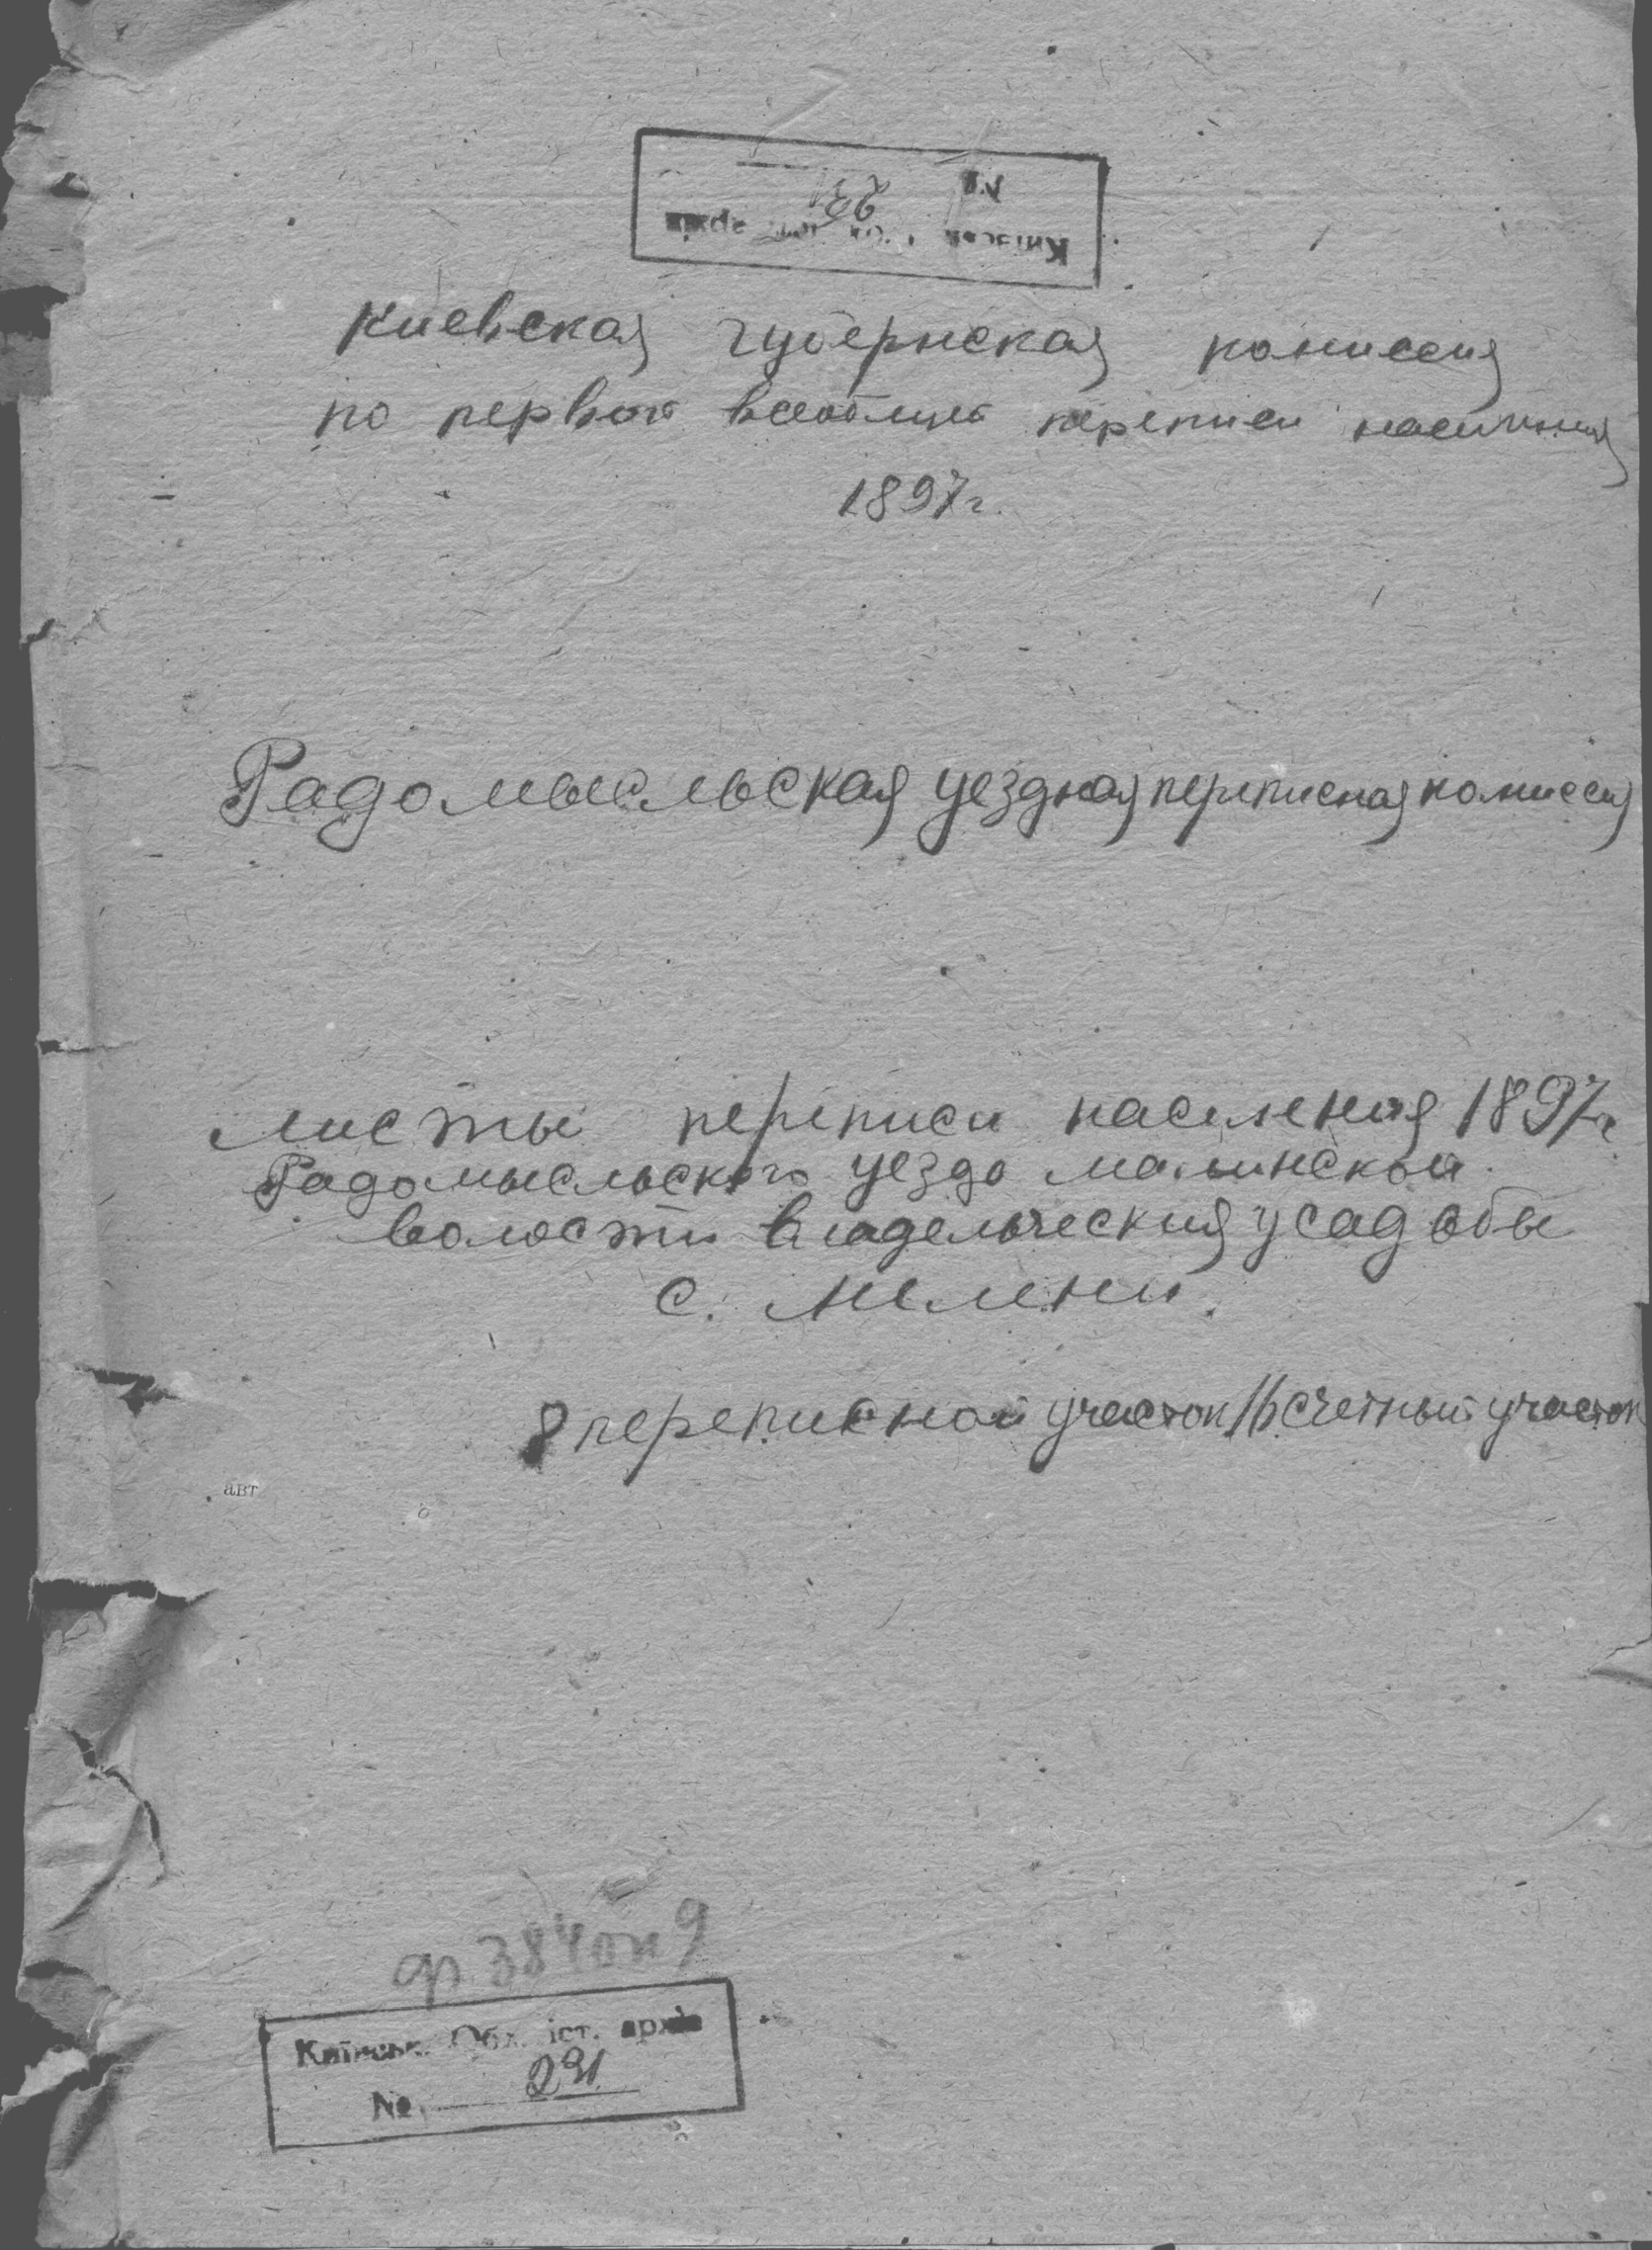 № 231
Київськ. Обл. іст. архів
Киевская губернская комиссия
по первой всеобщей переписи населения
1897 г.
Радомысльская уездная переписная комиссия
Листы переписи населения 1897 г
Радомысльского уезда Малинской
волости владельческия усадьбы
с. Мелени.
8 переписной участок 16 счетный участок
авт
ф 384 оп 9
Київськ. Обл. іст. архів
№ 231